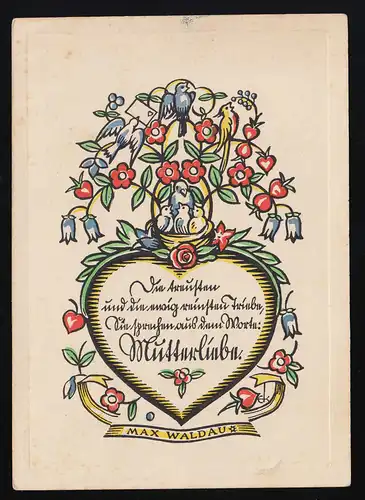 Die treusten
und die ewig reinsten Triebe,
Sie sprechen aus dem Worte:
Mutterliebe.
MAX WALDAU